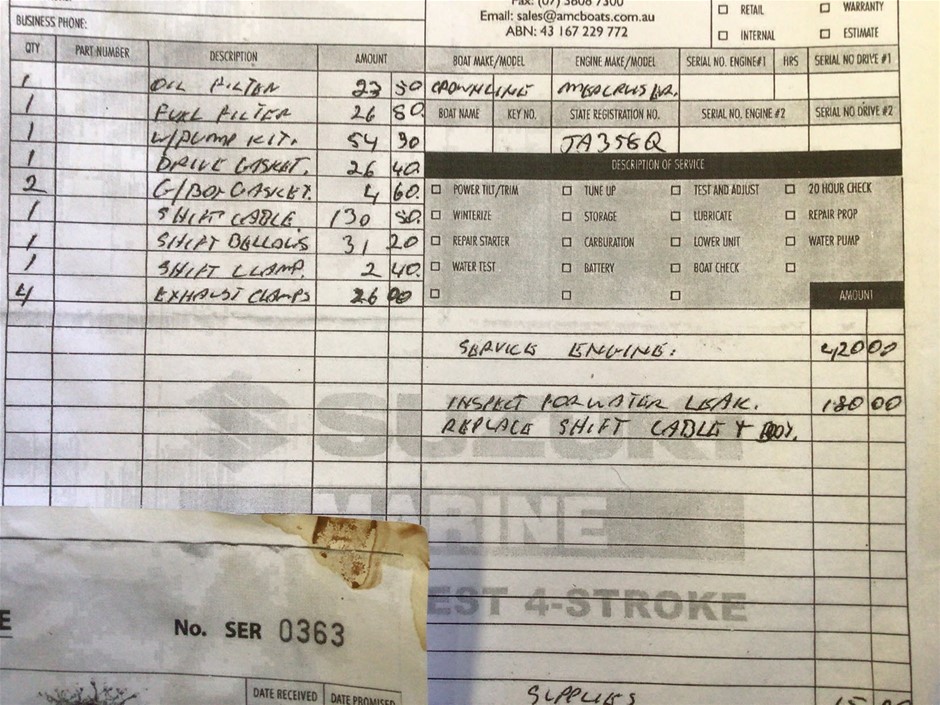 Fax: (07) 3808 7300
Email: sales@amcboats.com.au
ABN: 43 167 229 772
RETAIL WARRANTY
INTERNAL ESTIMATE
BUSINESS PHONE:
QTY PART NUMBER DESCRIPTION AMOUNT BOAT MAKE/MODEL ENGINE MAKE/MODEL SERIAL NO. ENGINE#1 HRS SERIAL NO DRIVE #1
1 OIL FILTER 23 50 CROWNLINE
1 FUEL FILTER 26 80. BOAT NAME KEY NO. STATE REGISTRATION NO. SERIAL NO. ENGINE #2 SERIAL NO DRIVE #2
1 W/PUMP KIT. 54 90 JA358Q
1 DRIVE GASKET. 26 40. DESCRIPTION OF SERVICE
2 G/BOX GASKET. 4 60. POWER TILT/TRIM TUNE UP TEST AND ADJUST 20 HOUR CHECK
1 SHIFT CABLE 130 50. WINTERIZE STORAGE LUBRICATE REPAIR PROP
1 SHIFT BELLOWS 31 20 REPAIR STARTER CARBURATION LOWER UNIT WATER PUMP
1 SHIFT CLAMP. 2 40. WATER TEST BATTERY BOAT CHECK
4 EXHAUST CLAMPS 26 00 AMOUNT
SERVICE ENGINE: 420 00
INSPECT FOR WATER LEAK. 180 00
REPLACE SHIFT CABLE &
SUZUKI
MARINE
EST 4-STROKE
E
No. SER 0363
DATE RECEIVED DATE PROMISED
SUPPLIES 15